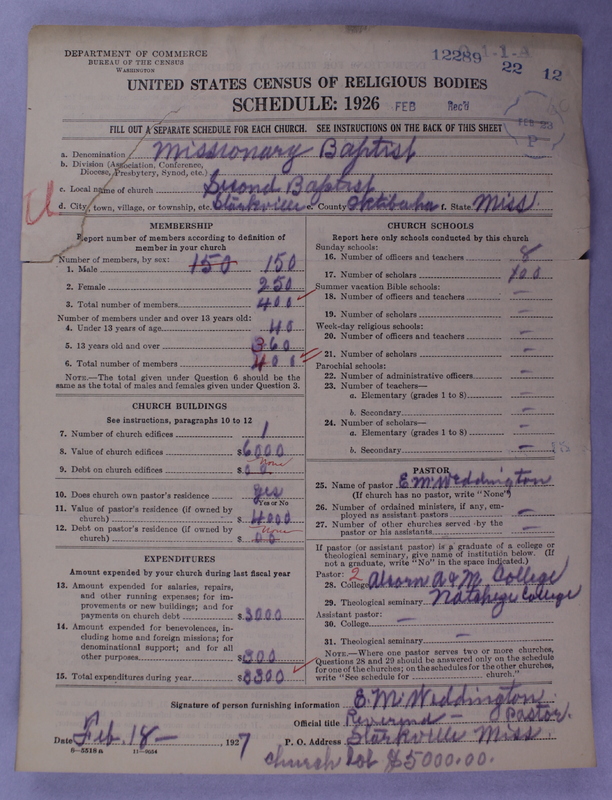 DEPARTMENT OF COMMERCE
BUREAU OF THE CENSUS
WASHINGTON
12289
22 12
UNITED STATES CENSUS OF RELIGIOUS BODIES
SCHEDULE: 1926 FEB Rec'd
FILL OUT A SEPARATE SCHEDULE FOR EACH CHURCH. SEE INSTRUCTIONS ON THE BACK OF THIS SHEET
FEB 23
P
a. Denomination Missionary Baptist
b. Division (Association, Conference, Diocese, Presbytery, Synod, etc.)
c. Local name of church Second Baptist
d. City, town, village, or township, etc. Starkville e. County Oktibbeha f. State Miss.
MEMBERSHIP
Report number of members according to definition of
member in your church
Number of members, by sex:
1. Male 150 150
2. Female 250
3. Total number of members 400
Number of members under and over 13 years old:
4. Under 13 years of age 40
5. 13 years old and over 360
6. Total number of members 400
NOTE.—The total given under Question 6 should be the
same as the total of males and females given under Question 3.
CHURCH BUILDINGS
See instructions, paragraphs 10 to 12
7. Number of church edifices 1
8. Value of church edifices $6000
9. Debt on church edifices $00 none
10. Does church own pastor's residence yes
Yes or No
11. Value of pastor's residence (if owned by
church) $4000
12. Debt on pastor's residence (if owned by
church) $00 none
EXPENDITURES
Amount expended by your church during last fiscal year
13. Amount expended for salaries, repairs,
and other running expenses; for im-
provements or new buildings; and for
payments on church debt $3000
14. Amount expended for benevolences, in-
cluding home and foreign missions; for
denominational support; and for all
other purposes $300
15. Total expenditures during year $3300
CHURCH SCHOOLS
Report here only schools conducted by this church
Sunday schools:
16. Number of officers and teachers 8
17. Number of scholars 100
Summer vacation Bible schools:
18. Number of officers and teachers —
19. Number of scholars —
Week-day religious schools:
20. Number of officers and teachers —
21. Number of scholars —
Parochial schools:
22. Number of administrative officers —
23. Number of teachers—
a. Elementary (grades 1 to 8) —
b. Secondary —
24. Number of scholars—
a. Elementary (grades 1 to 8) —
b. Secondary —
PASTOR
25. Name of pastor E. M. Weddington
(If church has no pastor, write "None")
26. Number of ordained ministers, if any, em-
ployed as assistant pastors —
27. Number of other churches served by the
pastor or his assistants —
If pastor (or assistant pastor) is a graduate of a college or
theological seminary, give name of institution below. (If
not a graduate, write "No" in the space indicated.)
Pastor: 2
28. College Alcorn A & M College
29. Theological seminary Natchez College
Assistant pastor:
30. College —
31. Theological seminary —
NOTE.—Where one pastor serves two or more churches,
Questions 28 and 29 should be answered only on the schedule
for one of the churches; on the schedules for the other churches,
write "See schedule for church."
Signature of person furnishing information E. M. Weddington
Official title Reverend — Pastor.
Date Feb. 18 —, 1927 P. O. Address Starkville Miss.
8—5518a 11—9034
church lot $5000.00.